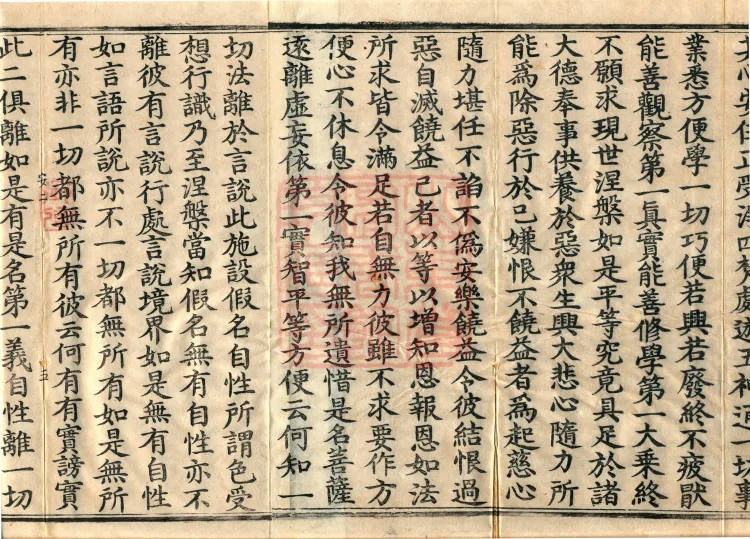 其心安住正受法四梵處遊五神通一切事
業悉方便學一切巧便若興若廢終不疲厭
能善觀察第一眞實能善修學第一大乘終
不願求現世涅槃如是平等究竟具足於諸
大德奉事供養於惡衆生興大悲心隨力所
能爲除惡行於己嫌恨不饒益者爲起慈心
隨力堪任不諂不僞安樂饒益令彼結恨過
惡自滅饒益己者以等以增知恩報恩如法
所求皆令滿足若自無力彼雖不求要作方
便心不休息令彼知我無所遺惜是名菩薩
遠離虛妄依第一實智平等方便云何知一
切法離於言說此施設假名自性所謂色受
想行識乃至涅槃當知假名無有自性亦不
離彼有言說行處言說境界如是無有自性
如言語所說亦不一切都無所有如是無所
有亦非一切都無所有彼云何有有實謗實
五
此二俱離如是有是名第一義自性離一切